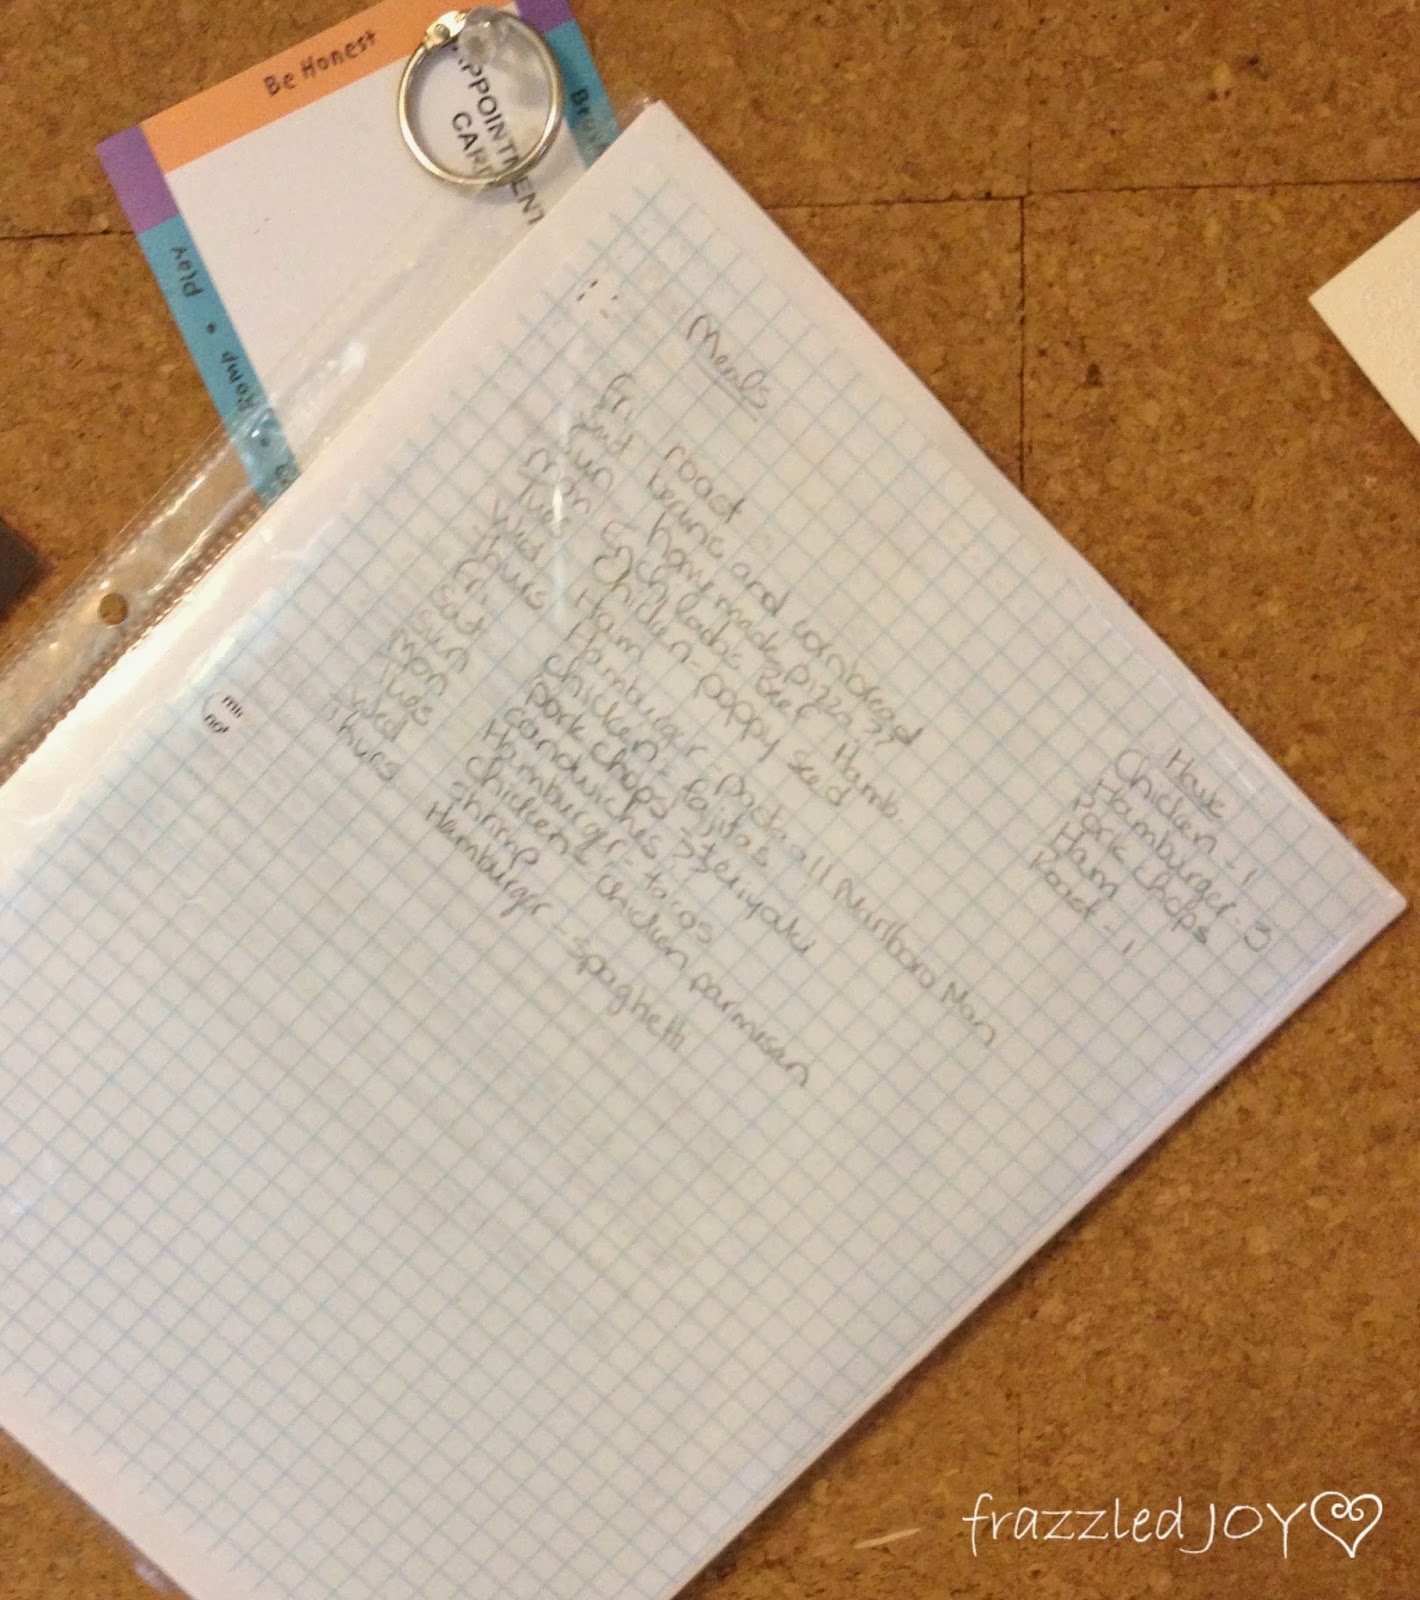 Be Honest
APPOINTMENT
CARD
play • Romp •
Meals
Fri roast
Sat beans and cornbread
Sun home made pizza??
Mon Enchiladas Beef Hamb.
Tues Chicken - poppy seed
Wed Ham
Thurs Hamburger - pasta all Marlboro Man
Fri Chicken - fajitas
Sat pork chops > teriyaki
Sun sandwiches
Mon Hamburger - tacos
Tues Chicken - chicken parmesan
Wed shrimp
Thurs Hamburger - spaghetti
Have
Chicken - 1
Hamburger - 3
Pork chops
Ham
Roast - 1
frazzled JOY